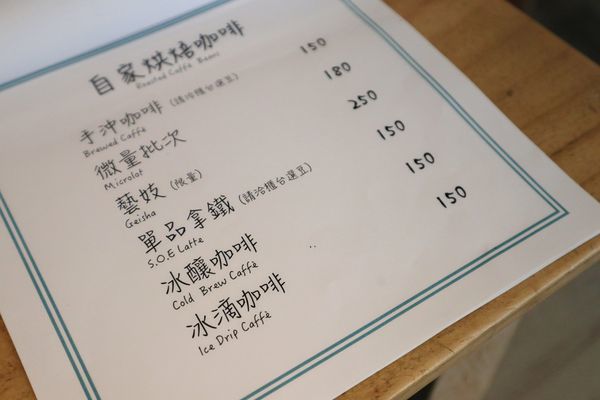 自家烘焙咖啡
Roasted Caffè Beans
手沖咖啡 (請洽櫃台選豆) 150
Brewed Caffè
微量批次 180
Microlot
藝妓 (限量) 250
Geisha
單品拿鐵 (請洽櫃台選豆) 150
S.O.E Latte
冰釀咖啡 150
Cold Brew Caffè
冰滴咖啡 150
Ice Drip Caffè